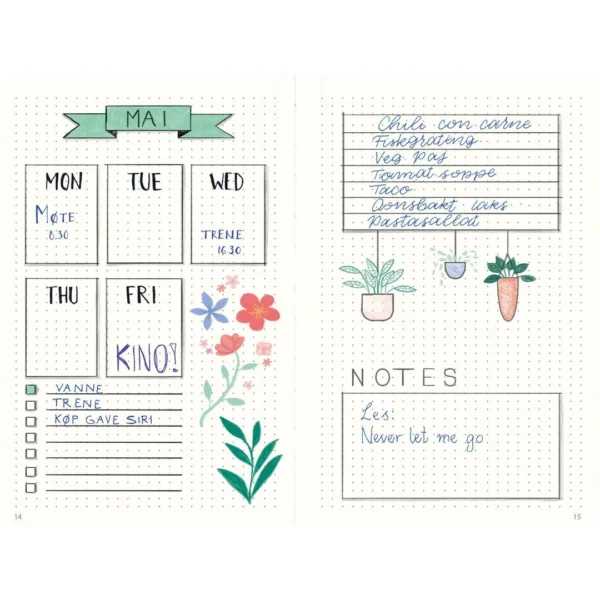 MAI
MON
TUE
WED
MØTE
8.30
TRENE
16.30
THU
FRI
KINO!
VANNE
TRENE
KØP GAVE SIRI
14
Chili con carne
Fiskegrateng
Veg pas
Tomat soppe
Taco
Ovnsbakt laks
Pastasallad
NOTES
Les:
Never let me go
15